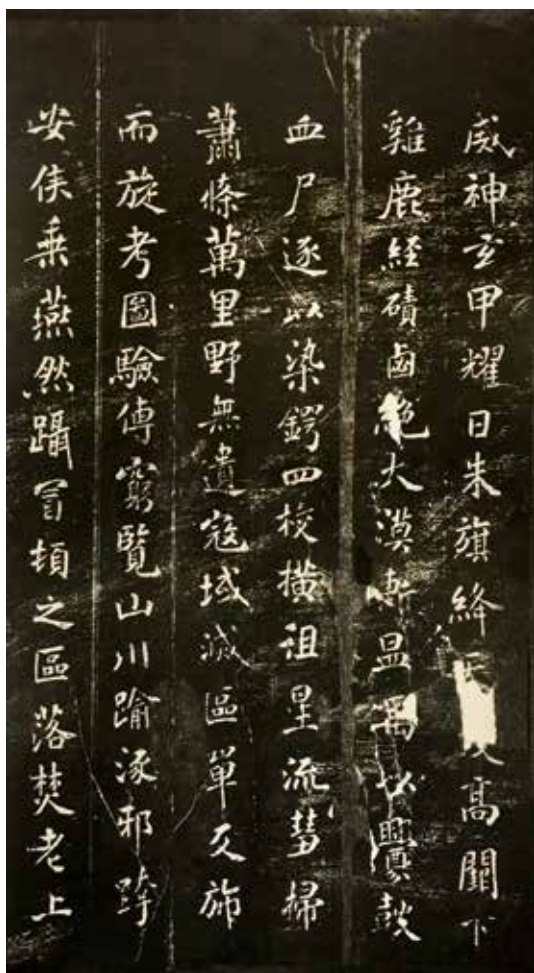 威神玄甲耀日朱旗絳高闕下
雞鹿經磧鹵絕大漠斬昷禺以釁鼓
血尸逐以染鍔四校橫徂星流彗掃
蕭條萬里野無遺寇域滅區單反旆
而旋考圖驗傳窮覽山川踰涿邪跨
安侯乘燕然躡冒頓之區落焚老上